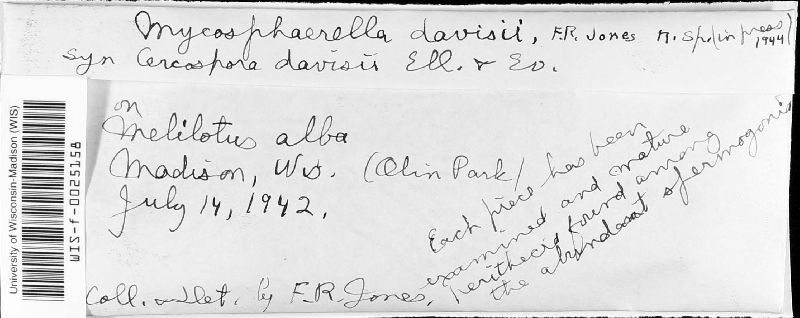 Mycosphaerella davisii, F.R. Jones n. sp. (in press) 1944
Syn Cercospora davisii Ell. & Ev.
on
Melilotus alba
Madison, Wis. (Olin Park)
July 14, 1942.
Each piece has been
examined and mature
perithecia found among
the abundant spermogonia
Coll. and det. by F.R. Jones.
University of Wisconsin-Madison (WIS)
WIS-f-0025158